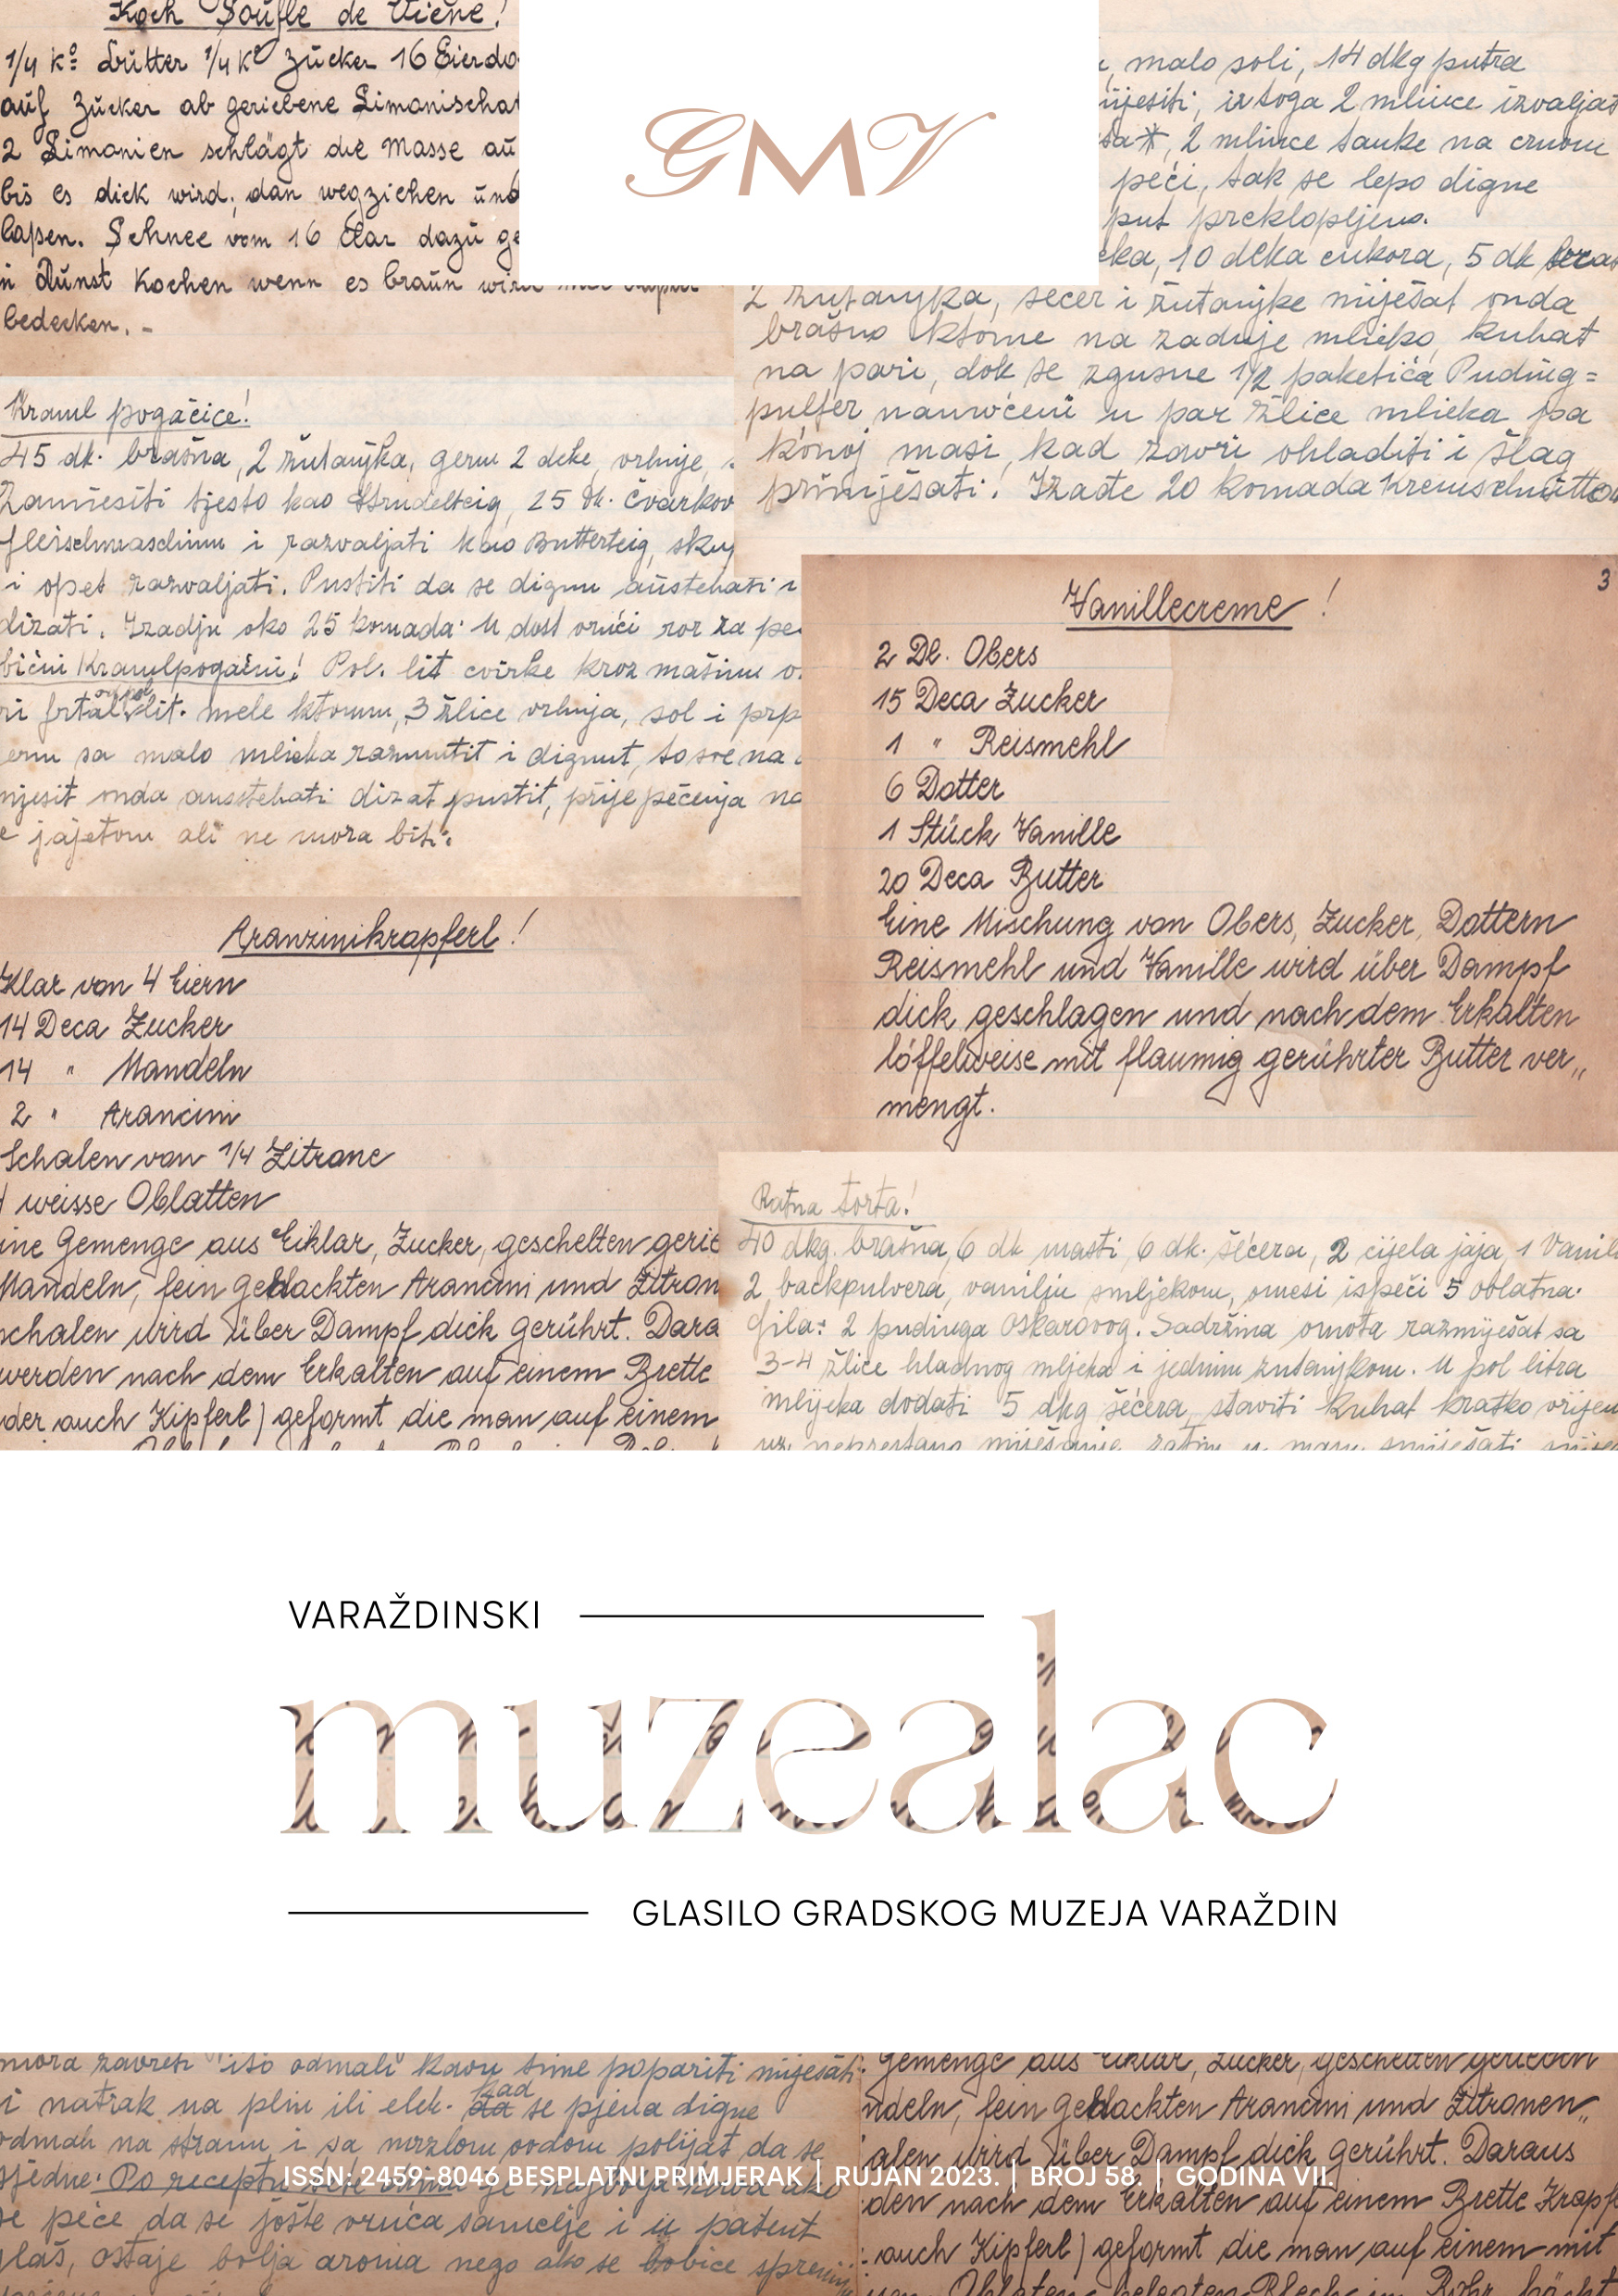 Koch Soufle de Viene!
1/4 kº Butter 1/4 Kº Zücker 16 Eierdo
auf Zücker ab geriebene Limonischa
2 Limonien schlägt die Masse au
bis es dick wird, dan wegziehen und
lassen. Schnee vom 16 Clar dazü ge
in Dünst Kochen wenn es braün wird
bedecken. -
malo soli, 14 dkg putra
umijesiti, iz toga 2 mlince izvaljat
2 mlince tanke na crnom
peći, tak se lepo digne
put preklopljeno.
10 deka cukora, 5 dk
2 žutanjka, šećer i žutanjke miješat onda
brašno ktome na zadnje mlieko, kuhat
na pari, dok se zgusne 1/2 paketića Puding=
pulfer namočeni u par žlice mlieka pa
k onoj masi, kad zavri ohladiti i šlag
primješati. Izađe 20 komada Kremschnitto
Kraml pogačice!
45 dk. brašna, 2 žutanjka, germ 2 deke, vrhnje,
Zamiesiti tjesto kao Strudelteig, 25 dk. čvarkov
fleischmaschinu i razvaljati kao Butterteig, skup
i opet razvaljati. Pustiti da se dignu austehati i
dizati. Izadju oko 25 komada. U dost vrući ror za pe
bični Kramlpogačni! Pol. lit cvirke kroz mašinu
ri frtal lit. mele ktomu, 3 žlice vrhnja, sol i
sa malo mlieka razmutit i dignut, to sve na
mjesit onda ausstehati dizat pustit, prije pečenja
jajetom ali ne mora biti.
Vanillecreme!
3
2 Dl. Obers
15 Deca Zucker
1 " Reismehl
6 Dotter
1 Stück Vanille
20 Deca Butter
Eine Mischung von Obers, Zucker, Dottern
Reismehl und Vanille wird über Dampf
dick geschlagen und nach dem Erkalten
löffelweise mit flaumig gerührter Butter ver„
mengt.
Aranzinikrapferl!
Klar von 4 Eiern
14 Deca Zucker
14 " Mandeln
2 " Arancini
Schalen von 1/4 Zitrone
weisse Oblatten
ine Gemenge aus Eiklar, Zucker, geschelten gerie
Mandeln, fein gehackten Arancini und Zitron
schalen wird über Dampf dick gerührt. Dara
werden nach dem Erkalten auf einem Brette
der auch Kipferl) geformt die man auf einem
Ratna torta!
40 dkg. brašna, 6 dk masti, 6 dk. šećera, 2 cijela jaja, 1 Vanil
2 backpulvera, vanilju smljekom, omesi ispeči 5 oblatna.
Fila: 2 pudinga Oskarovog. Sadržina omota razmiješat sa
3-4 žlice hladnog mljeka i jednim žutanjkom. U pol litra
mlijeka dodati 5 dkg šećera, staviti kuhat kratko vrijem
VARAŽDINSKI
muzealac
GLASILO GRADSKOG MUZEJA VARAŽDIN
mora zavreti isto odmah kavu time popariti miješati
i natrak na plin ili elek. kad se pjena digne
odmah na stranu i sa mrzlom vodom polijat da se
sjedne. Po receptu
se peće da se jošte vruća samelje i u patent
glaš, ostaje bolja aroma nego ako se bobice
Gemenge aus Eiklar, Zucker, geschelten gerieben
ndeln, fein gehackten Arancini und Zitronen„
alen wird über Dampf dick gerührt. Daraus
den nach dem Erkalten auf einem Brette Krapf
auch Kipferl) geformt die man auf einem mit
ISSN: 2459-8046 BESPLATNI PRIMJERAK | RUJAN 2023. | BROJ 58. | GODINA VII.
GMV